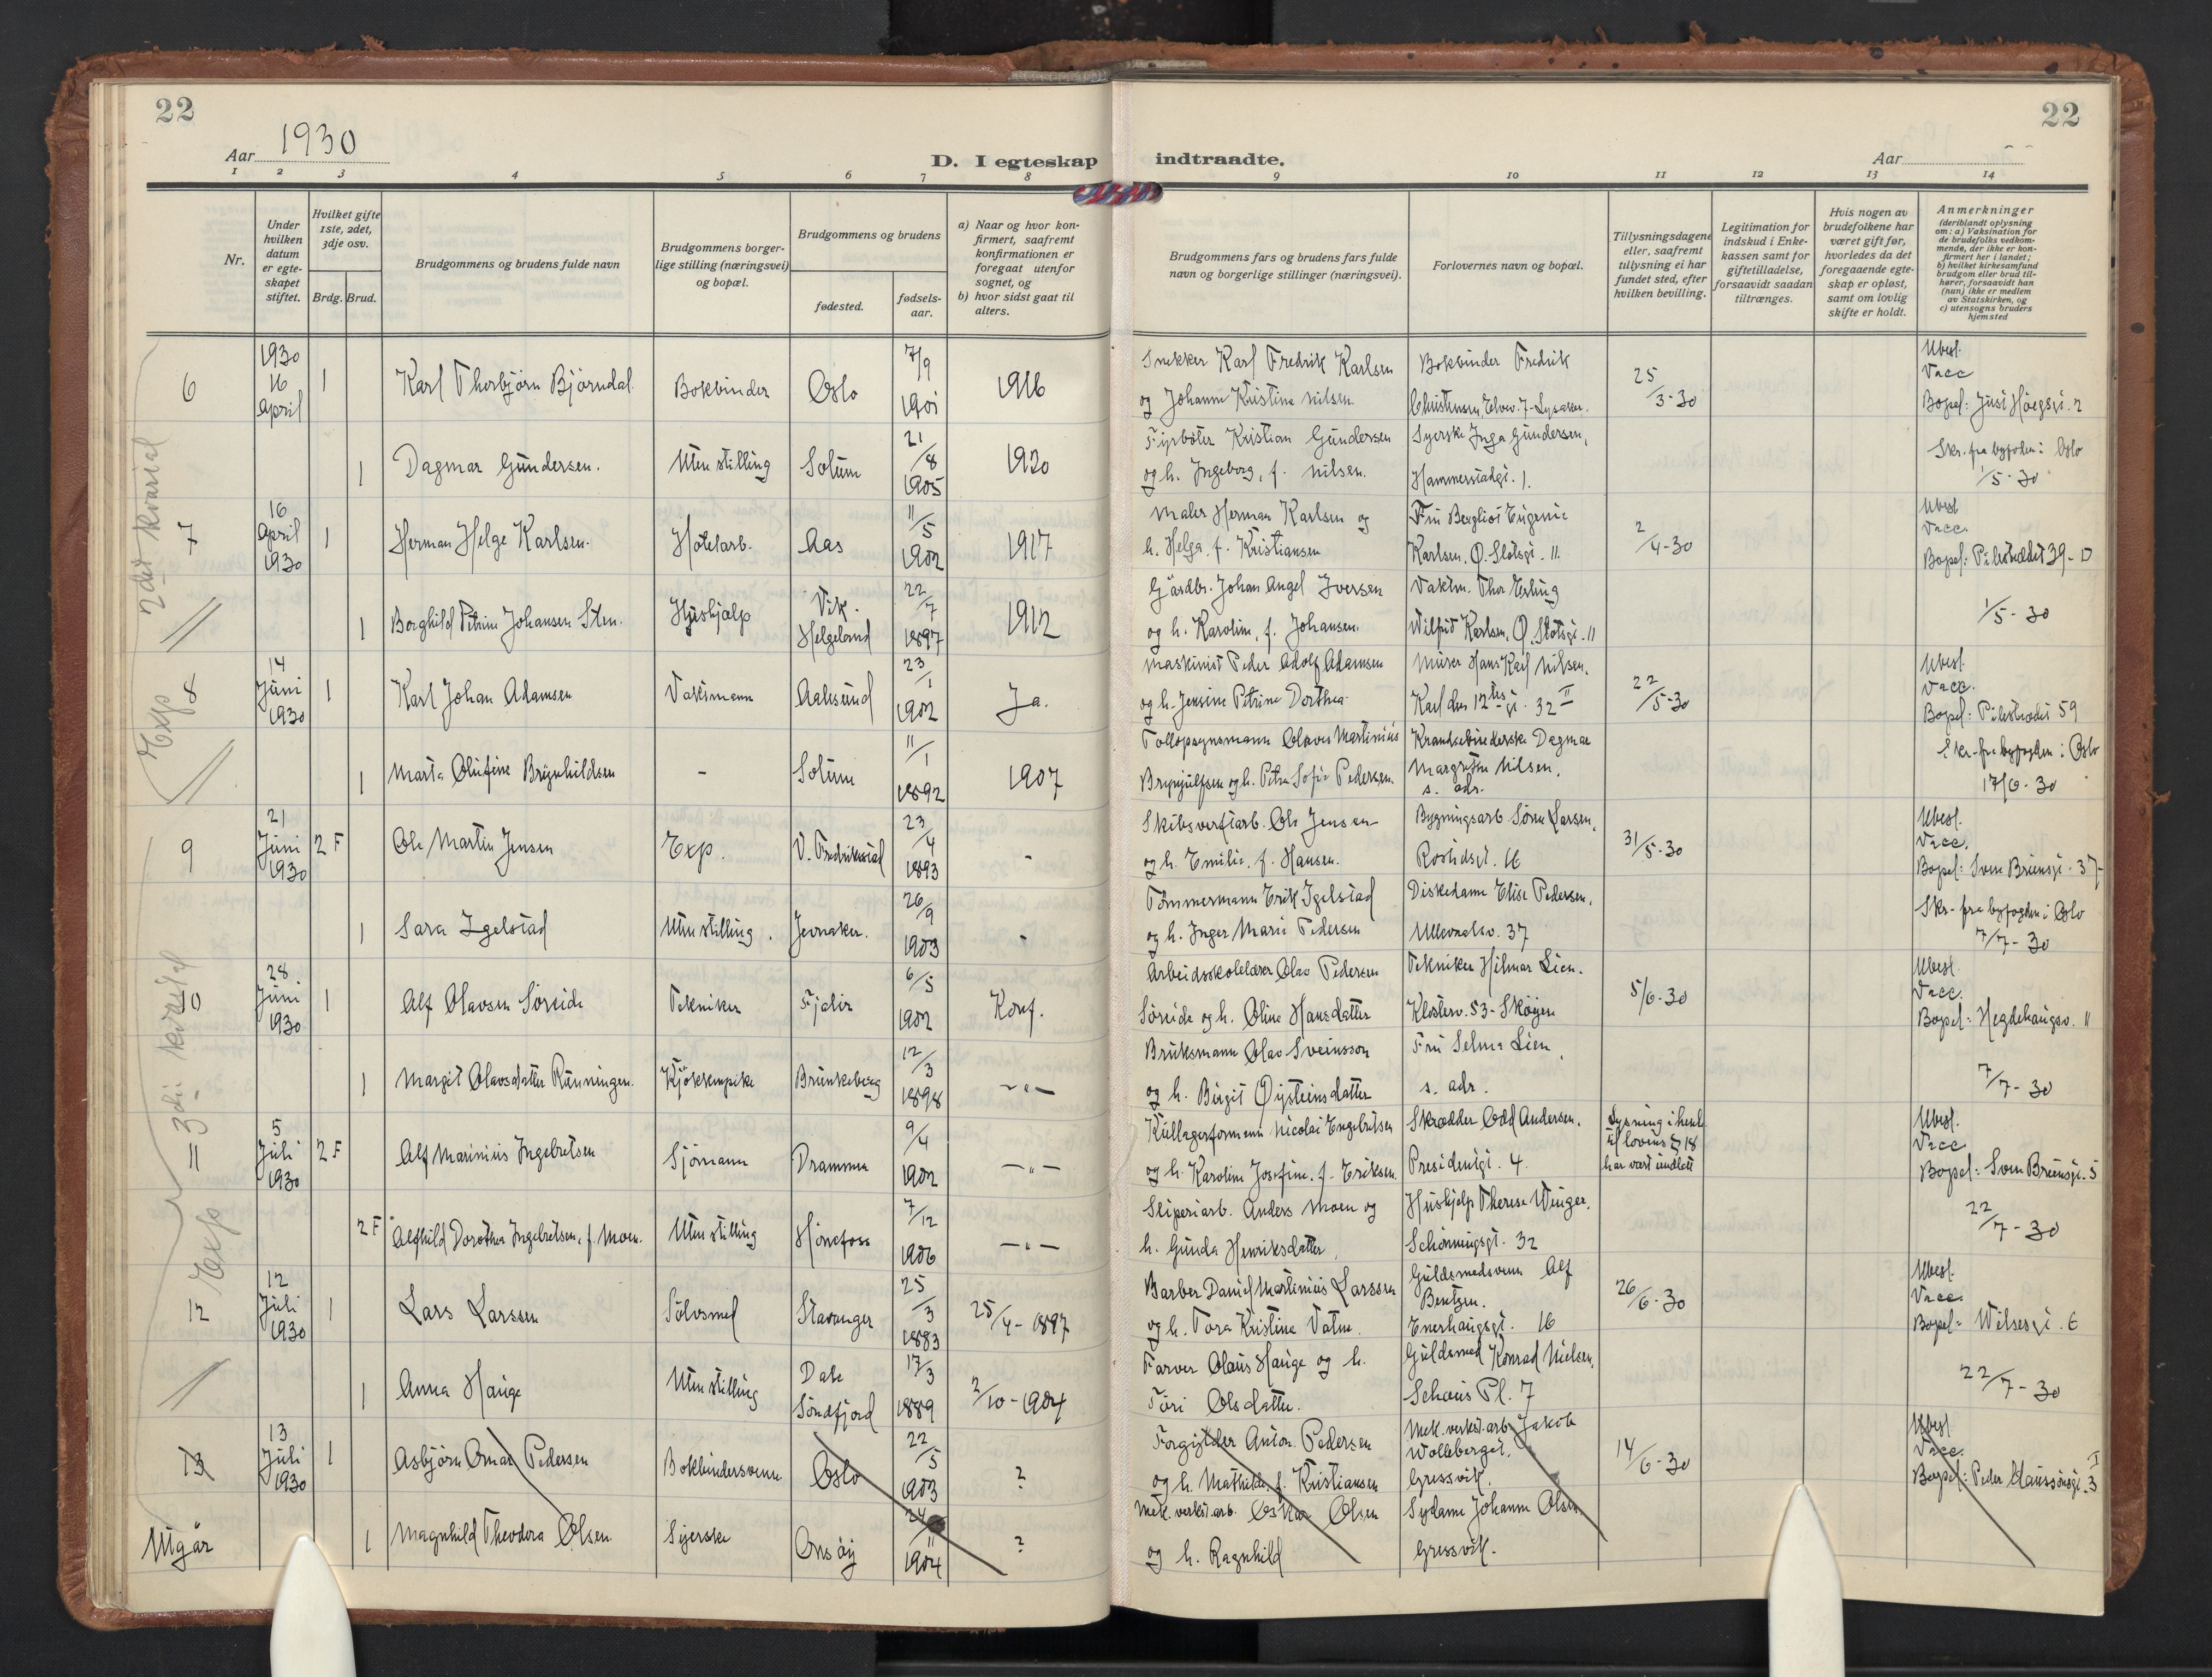 22
22
Aar 1930
D. I egteskap indtraadte.
Aar
1 2 3 4 5 6 7 8 9 10 11 12 13 14
Nr.
Under hvilken datum er egteskapet stiftet.
Hvilket gifte 1ste, 2det, 3dje osv.
Brdg. Brud.
Brudgommens og brudens fulde navn
Brudgommens borgerlige stilling (næringsvei) og bopæl.
Brudgommens og brudens
fødested.
fødselsaar.
a) Naar og hvor konfirmert, saafremt konfirmationen er foregaat utenfor sognet, og
b) hvor sidst gaat til alters.
Brudgommens fars og brudens fars fulde navn og borgerlige stillinger (næringsvei).
Forlovernes navn og bopæl.
Tillysningsdagene eller, saafremt tillysning ei har fundet sted, efter hvilken bevilling.
Legitimation for indskud i Enkekassen samt for giftetilladelse, forsaavidt saadan tiltrænges.
Hvis nogen av brudefolkene har været gift før, hvorledes da det foregaaende egteskap er opløst, samt om lovlig skifte er holdt.
Anmerkninger
(deriblandt oplysning om: a) Vaksination for de brudefolks vedkommende, der ikke er konfirmert her i landet; b) hvilket kirkesamfund brudgom eller brud tilhører, forsaavidt han (hun) ikke er medlem av Statskirken, og c) utensogns bruders hjemsted
2det kvartal
Exp
6 1930 16 April 1 Karl Thorbjørn Bjørndal Bokbinder Oslo 7/9 1901 1916
Snekker Karl Fredrik Karlsen og Johanne Kristine Nilsen
Bokbinder Fredrik Christensen, Elvev. 7-Lysaker.
25/3-30
Ubesl. Vacc
1 Dagmar Gundersen. Uten stilling Solum 21/8 1905 1920
Fyrbøter Kristian Gundersen og h. Ingeborg, f. Nilsen.
Syerske Inga Gundersen, Hammerstadgt. 1.
Skr. fra byfogden i Oslo 1/5-30
7 16 April 1930 1 Herman Helge Karlsen. Hotelarb. Aas 11/5 1902 1917
Maler Herman Karlsen og h. Helga, f. Kristiansen
Fru Bergliot Eugenie Karlsen, Ø. Slotsgt. 11.
2/4-30
Ubesl Vacc. Bopel: Pilestrædet 39-D
1 Borghild Petrine Johansen Sten. Hushjælp Vik. Helgeland 22/7 1897 1912
Gårdbr. Johan Angel Iversen og h. Karoline, f. Johansen.
Vaktm. Thor Erling Wilfred Karlsen, Ø. Slotsgt. 11
1/5-30
8 14 Juni 1930 1 Karl Johan Adamsen Vaktmann Aalesund 23/1 1902 Ja.
Maskinist Peder Adolf Adamsen og h. Jensine Petrine Dorthea
Murer Hans Karl Nilsen, Karl den 12tes gt. 32 II
22/5-30
Ubesl. Vacc. Bopel: Pilestrædet 59
1 Marta Olufine Brynhildsen - Solum 11/1 1892 1907
Tollopsynsmann Olaves Martinius Brynjulfsen og h. Petra Sofie Pedersen.
Krandsebinderske Dagmar Margrethe Nilsen, s. adr.
Skr. fra byfogden i Oslo 17/6-30
9 21 Juni 1930 2 F Ole Martin Jensen Exp. V. Fredrikstad 23/4 1893 -
Skibsverftarb. Ole Jensen og h. Emilie, f. Hansen.
Bygningsarb Søren Larsen, 16
31/5-30
Ubesl. Vacc. Bopel: Sven Bruunsgt. 37
1 Sara Igelstad Uten stilling. Jevnaker. 26/9 1903 -
Tømmermann Erik Igelstad og h. Inger Marie Pedersen
Diskedame Elise Pedersen, Ullevaalsv. 37
Skr. fra byfogden i Oslo 7/7-30
3die kvartal
Exp
10 28 Juni 1930 1 Alf Olavsen Sørseide Tekniker Fjaler 6/5 1902 Konf.
Arbeidsskolelærer Olav Pedersen Sørseide og h. Oline Hansdatter
Tekniker Hilmar Lien. Klosterv. 53-Skøyen
5/6-30
Ubesl. Vacc. Bopel: Hegdehaugsv. 11
1 Margit Olavsdatter Runningen. Kjøkkenpike Brunkeberg 12/3 1898 -"-
Bruksmann Olav Sveinsson og h. Birgit Øysteinsdatter
Fru Selma Lien, s. adr.
7/7-30
11 5 Juli 1930 2 F Alf Marinius Ingebretsen Sjømann Drammen 9/4 1902 -"-
Kullagerformann Nicolai Engebretsen og h. Karoline Josefine, f. Eriksen.
Skrædder Odd Andersen, Presidentgt. 4.
Lysning i henh. til lovens § 18 har vært undlatt
Ubesl. Vacc Bopel: Sven Bruunsgt. 5
2 F Alfhild Dorothea Ingebretsen, f. Moen. Uten stilling Hønefoss 7/12 1906 -"-
Sliperiarb. Anders Moen og h. Gunda Henriksdatter,
Hushjelp Therese Winger, Schønningsgt. 32
22/7-30
12 12 Juli 1930 1 Lars Larssen Sølvsmed Stavanger 25/3 1883 25/4-1897
Barber Daniel Martinius Larssen og h. Tora Kristine Vatne.
Guldsmedsvenn Alf Bentzen. Enerhaugsgt. 16
26/6-30
Ubesl. Vacc. Bopel: Wilsesgt. 6
1 Anna Hauge Uten stilling Dale Søndfjord 17/3 1889 2/10-1904
Farver Olaus Hauge og h. Tøri Olsdatter.
Guldsmed Konrad Nielsen, Schous Pl. 7
22/7-30
13 13 Juli 1930 1 Asbjørn Omar Pedersen Bokbindersvenn Oslo 22/5 1903 ?
Forgylder Anton Pedersen og h. Mathilde, f. Kristiansen
Mek. verkst. arb. Jakob Wolleberget. Gressvik.
14/6-30
Ubesl Vacc. Bopel: Peder Claussønsgt. 3 I
Utgår 1 Magnhild Theodora Olsen Syerske Onsøy 24/11 1904 ?
Mek. verkst. arb. Oskar Olsen og h. Ragnhild
Sydame Johanne Olsen Gressvik.